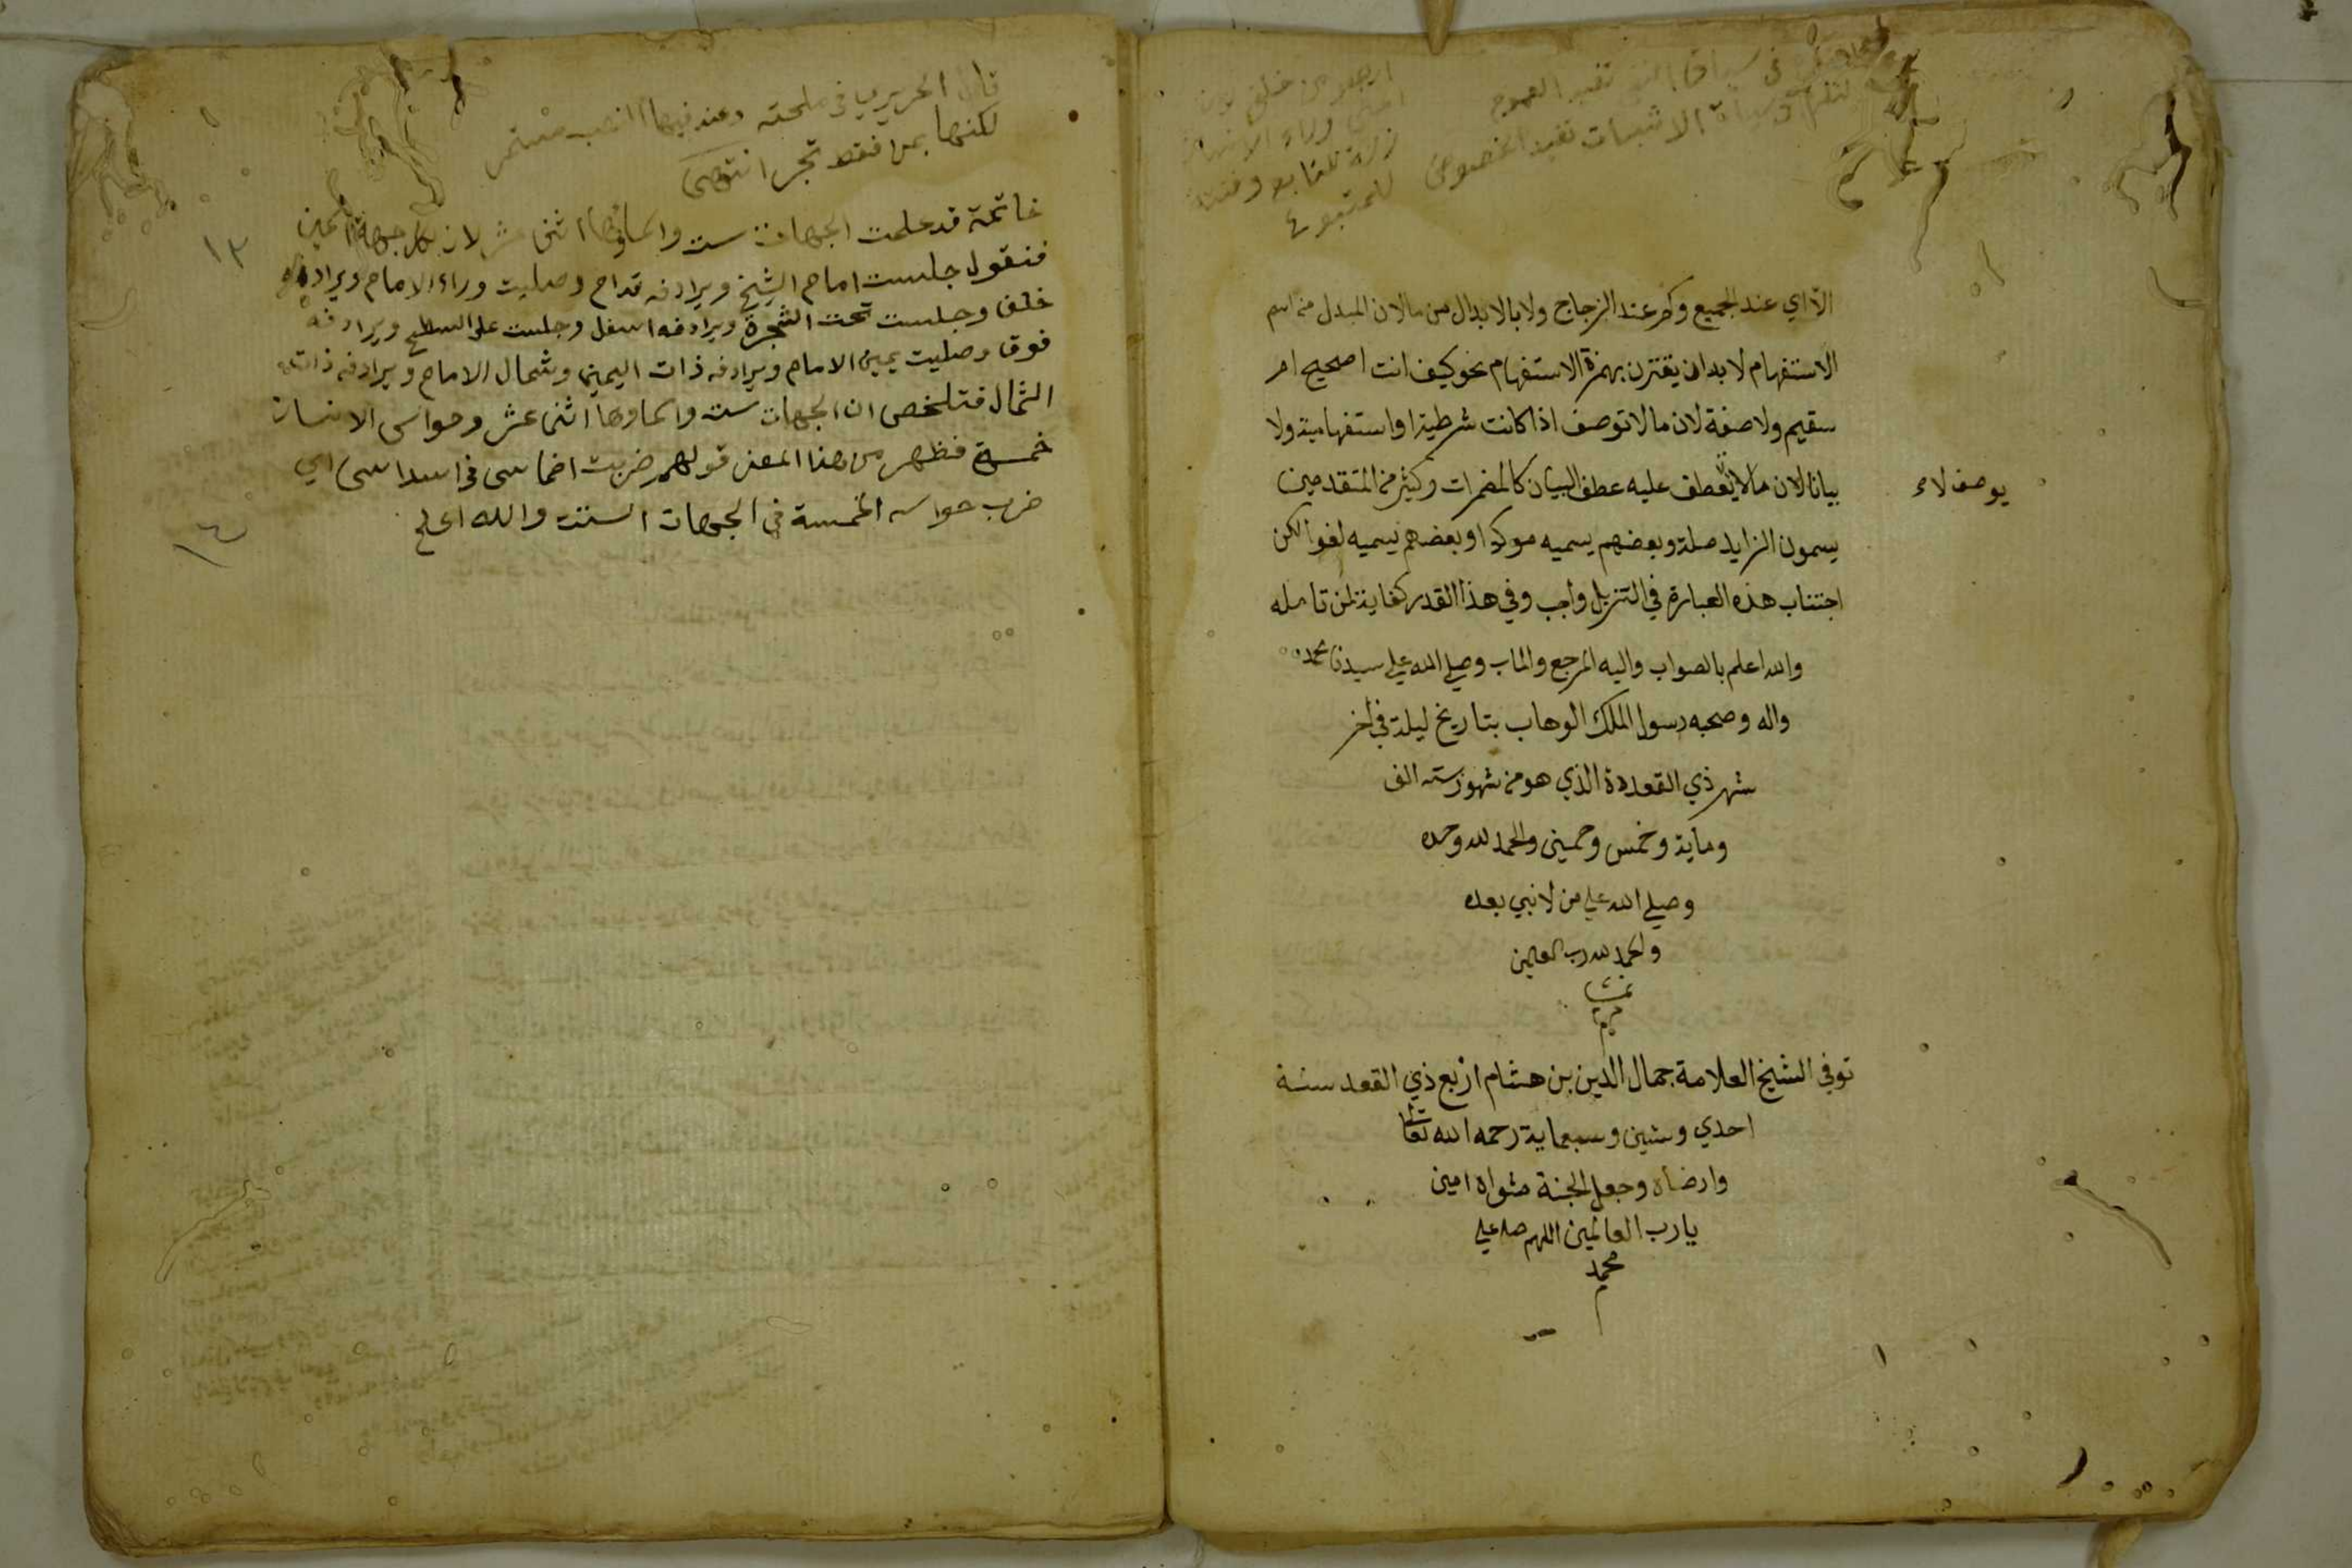 في سياق النفي تفيد العموم
وسياق الاثبات تفيد الخصوص
الا اي عند الجميع وكم عند الزجاج ولا بالابدال من ما لان المبدل من اسم
الاستفهام لا بد ان يقترن بهمزة الاستفهام نحو كيف انت اصحيح ام
سقيم ولا صفة لان ما لا توصف اذا كانت شرطية او استفهامية ولا
بيانا لان ما لا يعطف عليه عطف البيان كالمضمرات وكثير من المتقدمين
يوصف لا
يسمون الزايد صلة وبعضهم يسميه موكدا وبعضهم يسميه لغوا لكن
اجتناب هذه العبارة في التنزيل واجب وفي هذا القدر كفاية لمن تامله
والله اعلم بالصواب واليه المرجع والماب وصلي الله علي سيدنا محمد
واله وصحبه رسول الملك الوهاب بتاريخ ليلة في اخر
شهر ذي القعدة الذي هو من شهور سنه الف
وماية وخمس وخمسين والحمد لله وحده
وصلي الله علي من لا نبي بعده
والحمد لله رب العالمين
تمت
توفي الشيخ العلامة جمال الدين بن هشام اربع ذي القعد سنة
احدي وستين وسبعماية رحمه الله تعالى
وارضاه وجعل الجنة مثواه امين
يا رب العالمين اللهم صل علي
محمد
قال الحريري في ملحته وعند فيها النصب مستمر
لكنها بمن فقط تجر انتهى
خاتمة قد علمت الجهات ست واسماؤها اثني عشر لان لكل جهة اسمين
فنقول جلست امام الشيخ ويرادفه قدام وصليت وراء الامام ويرادفه
خلف وجلست تحت الشجرة ويرادفه اسفل وجلست على السطح ويرادفه
فوق وصليت يمين الامام ويرادفه ذات اليمين وشمال الامام ويرادفه ذات
الشمال فتلخص ان الجهات ست واسماوها اثني عشر وحواس الانسان
خمسة فظهر من هذا المعنى قولهم ضربت اخماسي في اسداسي اي
ضرب حواسه الخمسة في الجهات الستت والله اعلم
١٣
١٤